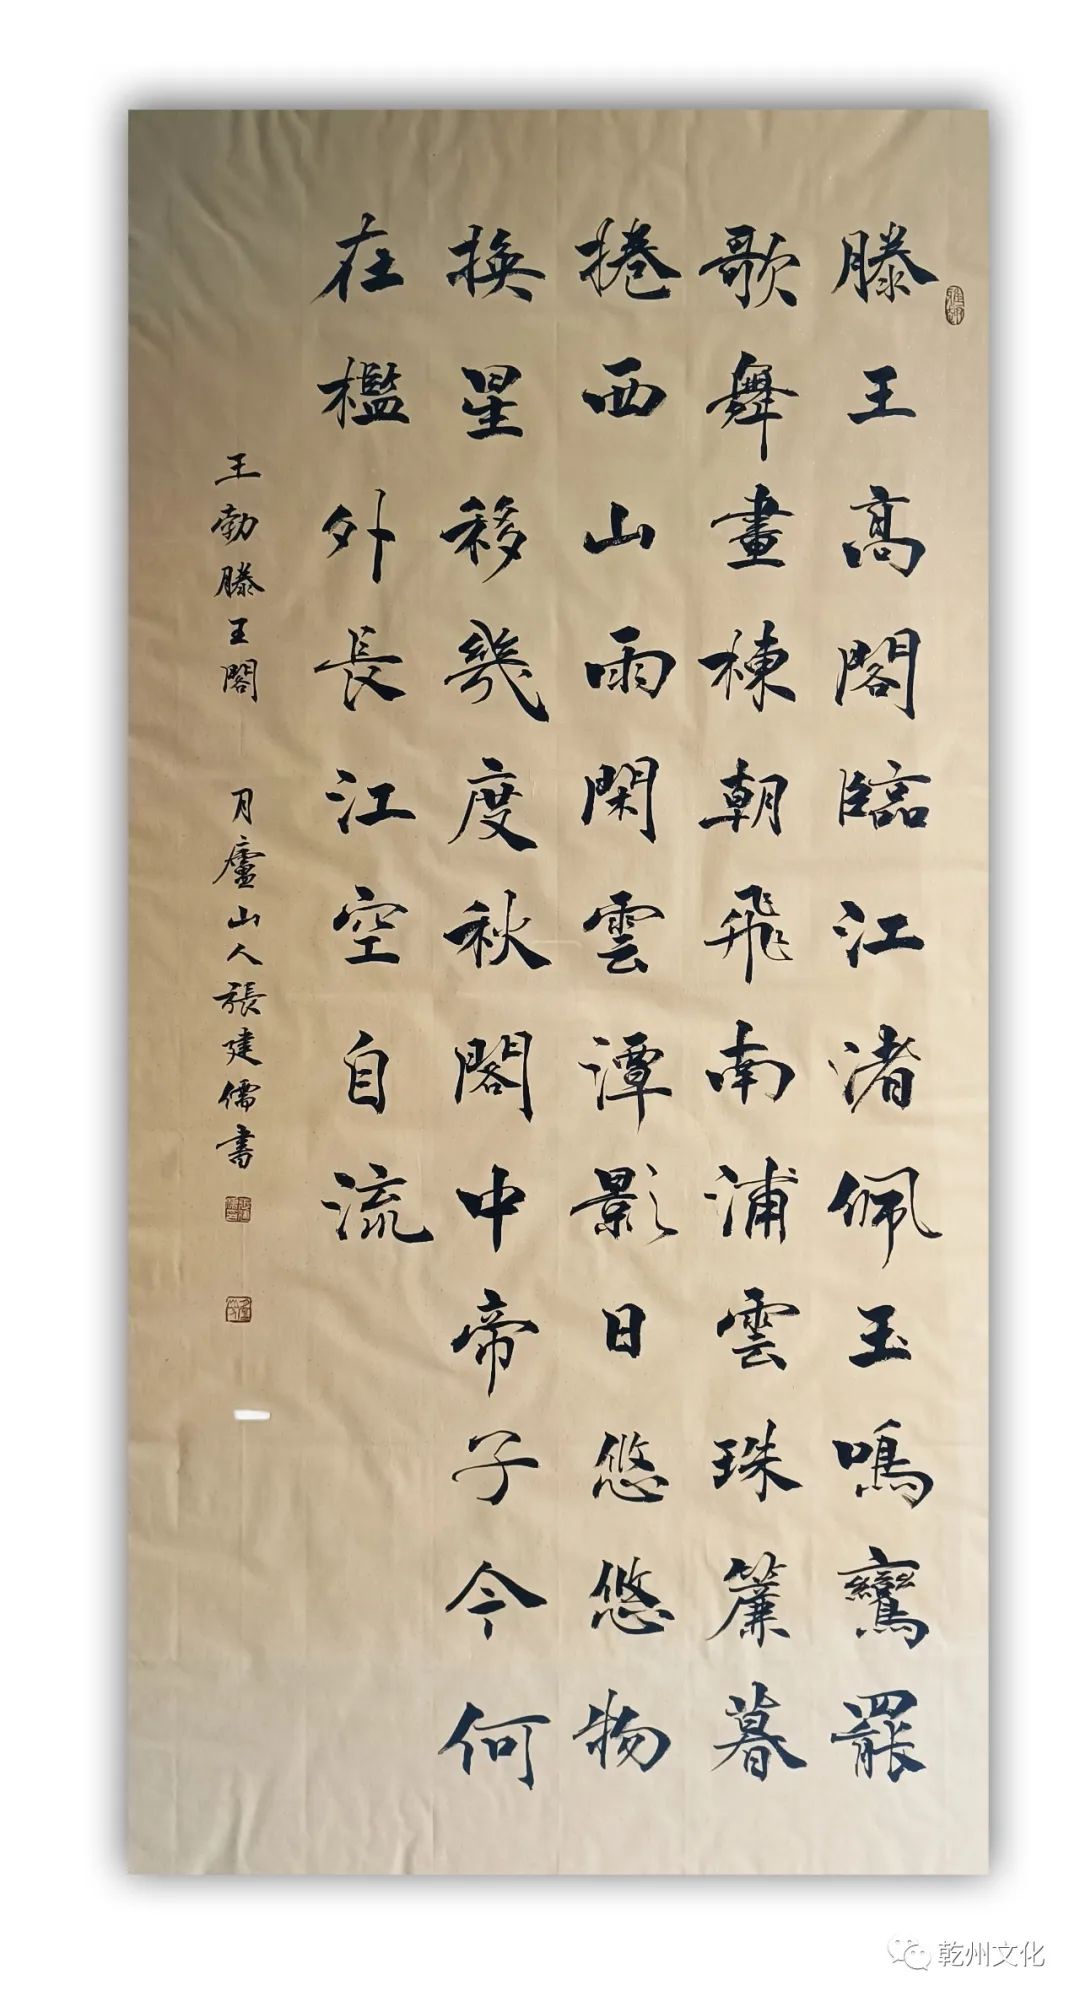 滕王高閣臨江渚佩玉鳴鸞罷
歌舞畫棟朝飛南浦雲珠簾暮
捲西山雨閑雲潭影日悠悠物
換星移幾度秋閣中帝子今何
在檻外長江空自流
王勃滕王閣 月廬山人張建儒書
乾州文化